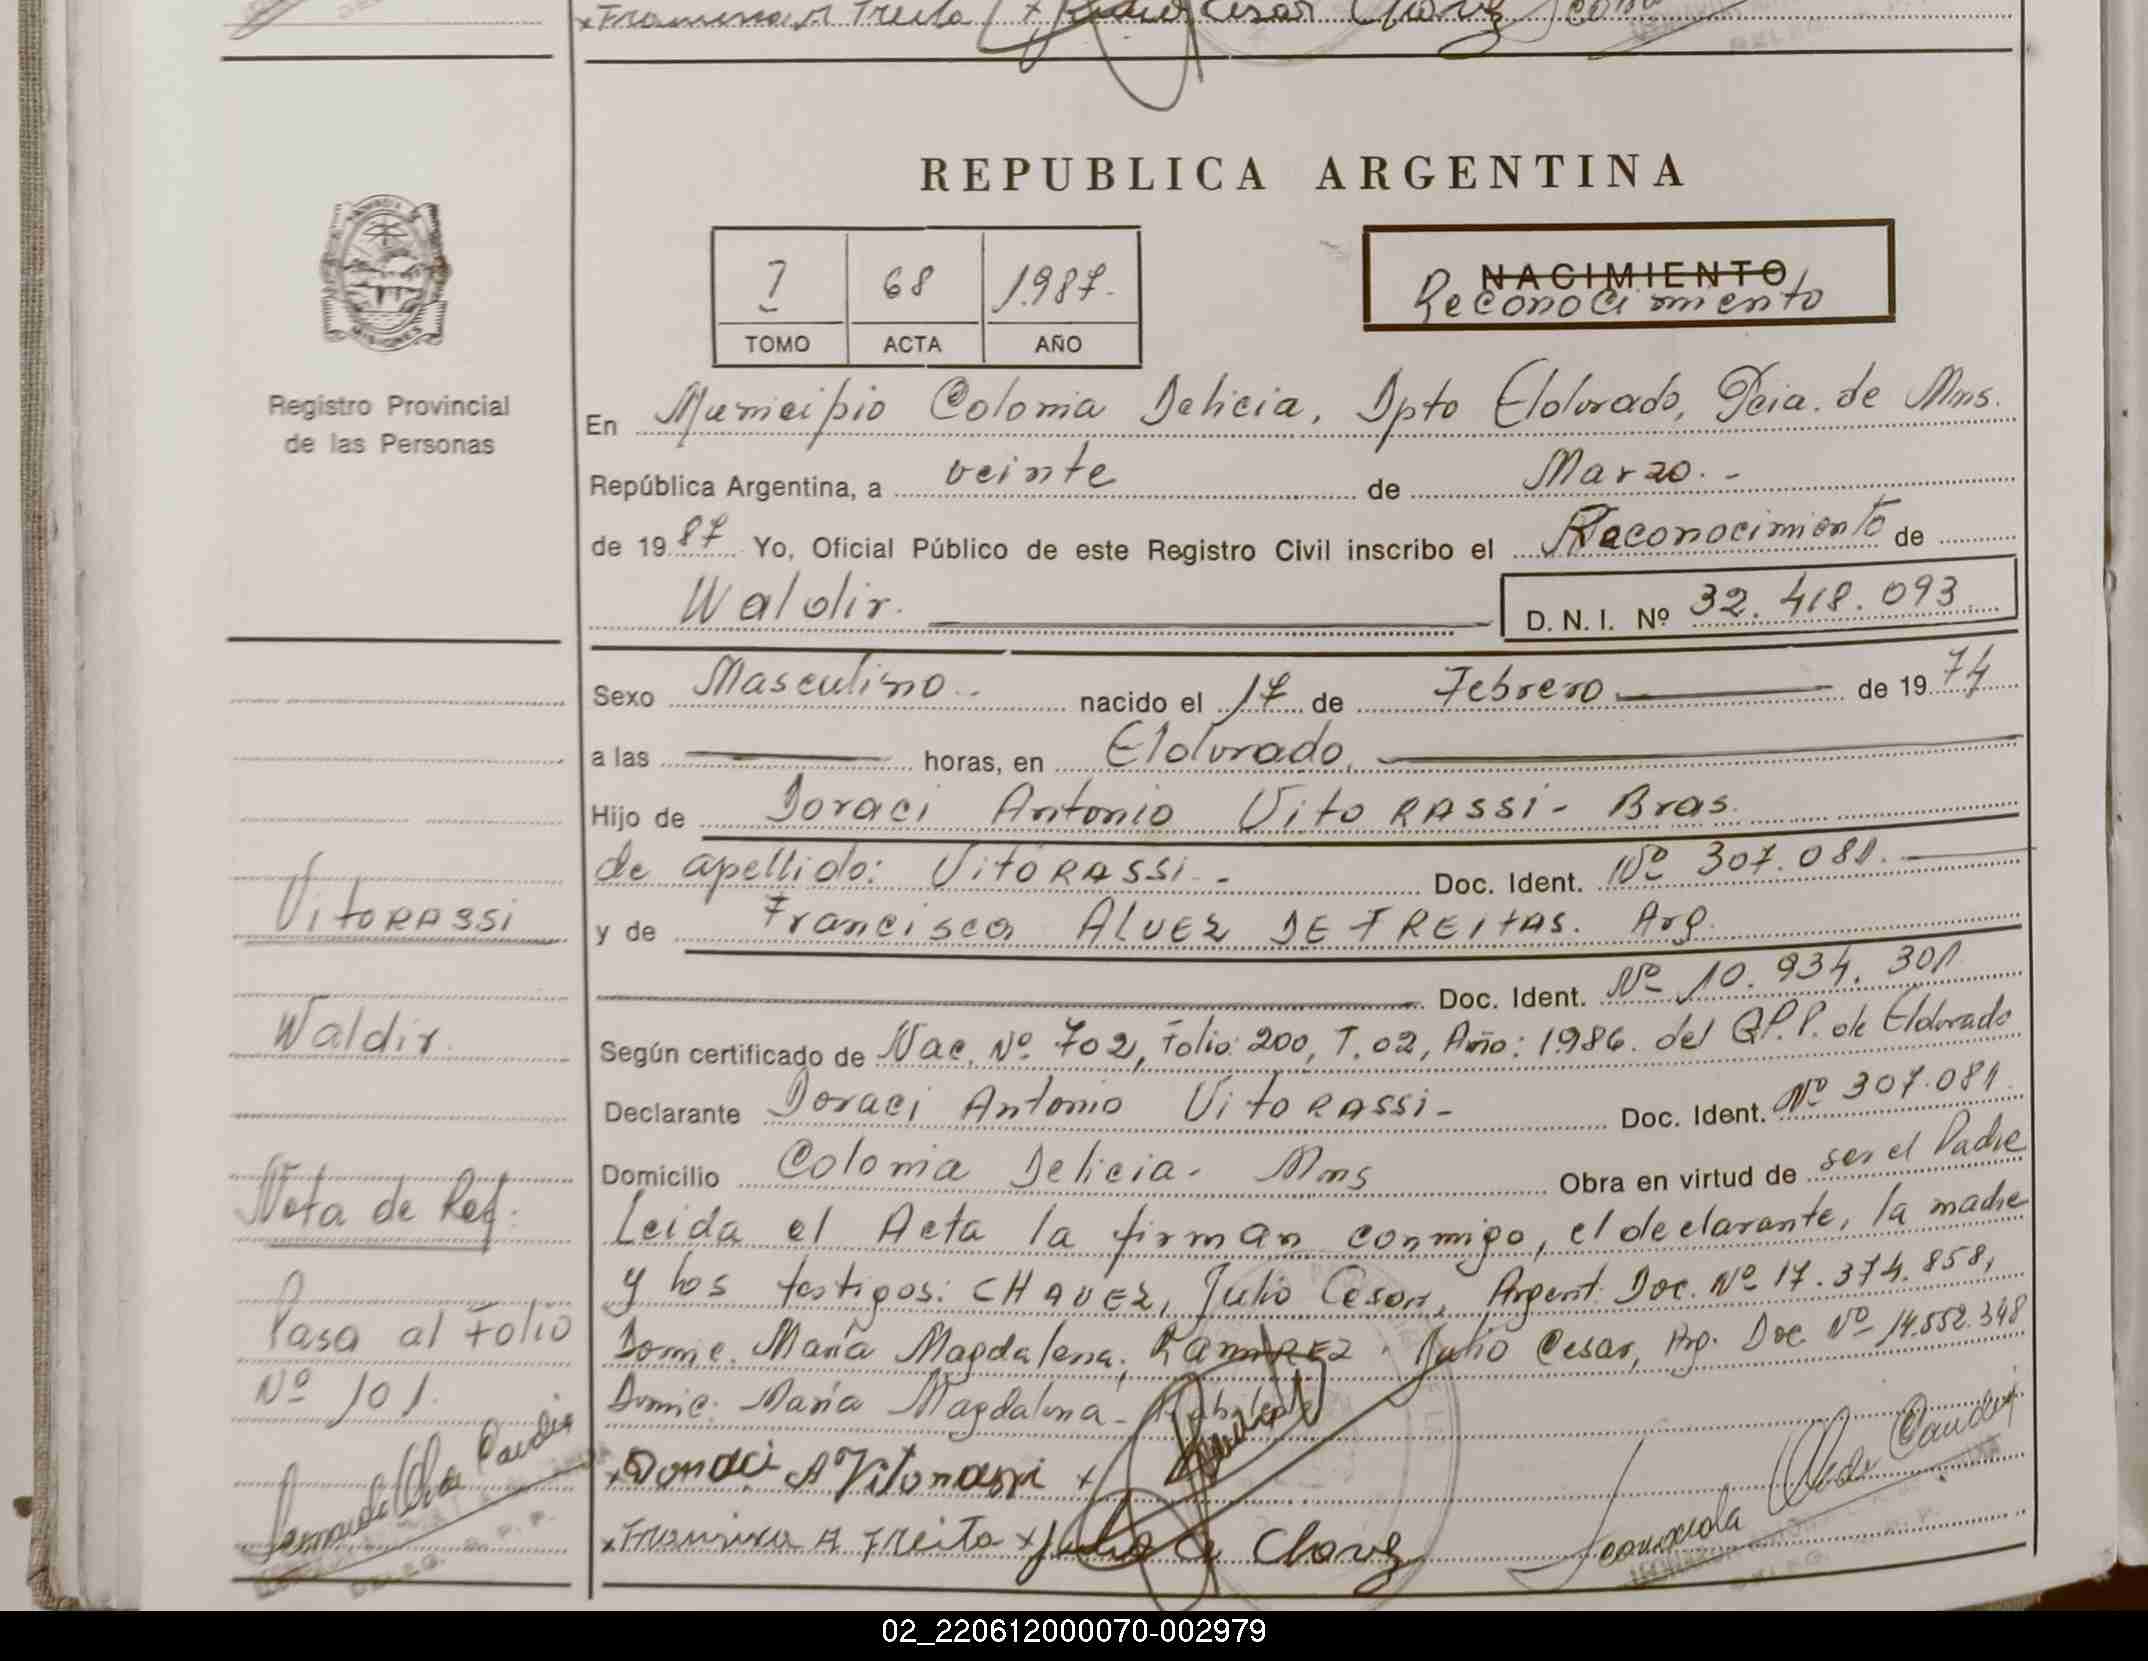 REPUBLICA ARGENTINA
7 68 1987.-
TOMO ACTA AÑO
NACIMIENTO
Reconocimiento
Registro Provincial
de las Personas
En Municipio Colonia Delicia, Dpto Eldorado, Pcia. de Mns.
República Argentina, a veinte de Marzo.-
de 1987 Yo, Oficial Público de este Registro Civil inscribo el Reconocimiento de
Waldir. D. N. I. Nº 32.418.093
Sexo Masculino.. nacido el 17 de Febrero de 1974
a las horas, en Eldorado,
Hijo de Doraci Antonio VitoRASSi- Bras.
de apellido: VitoRASSi.- Doc. Ident. Nº 307.081.
y de Francisca ALVEZ DE FREitAS. Arg.
Doc. Ident. Nº 10.934.301
Según certificado de Nac. Nº 702, Folio: 200, T. 02, Año: 1986. del R.P.P. de Eldorado
Declarante Doraci Antonio VitoRASSi- Doc. Ident. Nº 307.081.
Domicilio Colonia Delicia- Mns Obra en virtud de ser el Padre
Leida el Acta la firman conmigo, el declarante, la madre
y los testigos: CHAVEZ, Julio Cesar, Argent. Doc. Nº 17.374.858,
Domic. María Magdalena; RAMIREZ Julio Cesar, Arg. Doc Nº 14.552.348
Domic. María Magdalena-
x Doraci A Vitorassi x
x Francisca A Freita x Julio C Chavez
VitoRASSi
Waldir.
Nota de Ref:
Pasa al Folio
Nº 101.
02_220612000070-002979